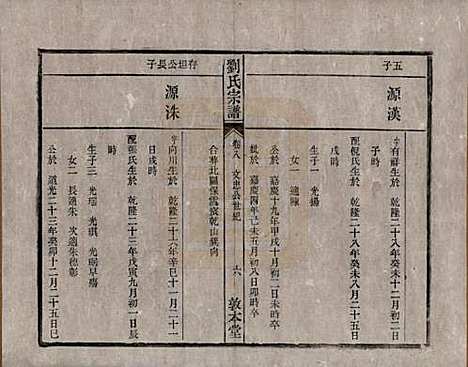 五子
源漢
字有蘇生於 乾隆二十八年癸未十二月初二日
子時
配倪氏生於 乾隆二十八年癸未八月二十五日
戌時
生子一 光揚
女一 適陳
公於 嘉慶十九年甲戌十月初二日未時卒
妣於 嘉慶四年己未五月初八日卯時卒
合葬北圖保
乾山巽向
劉氏宗譜
卷八 文忠公世紀
十六
敦本堂
存坦公長子
源洙
字向川生於 乾隆二十六年辛巳十一月二十一
日戌時
配張氏生於 乾隆二十三年戊寅九月初一日辰
時
生子三 光瑤 光琪 光瑚早殤
女二 長適朱 次適朱穂彰
公於 道光二十三年癸卯十二月二十五日巳